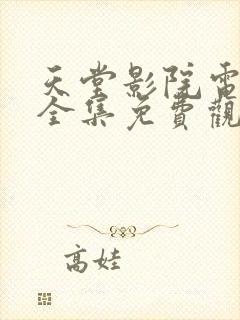 天堂影院電
全集免費觀
高娃